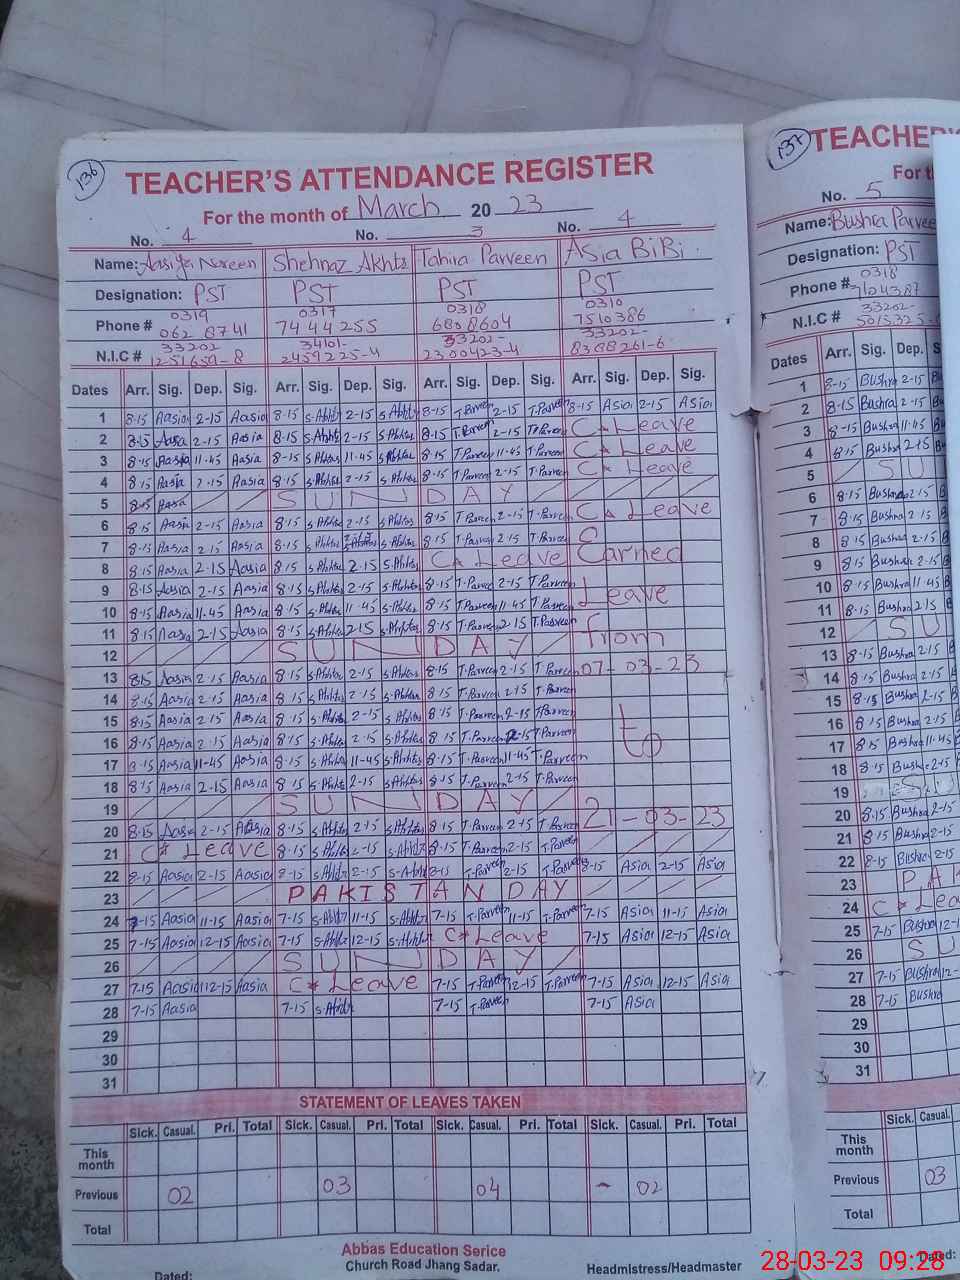 136
TEACHER'S ATTENDANCE REGISTER
For the month of March 20 23
No. 4 No. 3 No. 4
Name: Aasiya Noreen Shehnaz Akhtr Tahira Parveen Asia BiBi
Designation: PST PST PST PST
Phone # 0319 0317 0318 0310
062 8741 7444255 6808604 7510386
N.I.C # 33202 34101- 33202- 33202-
1251659-8 2459225-4 2300423-4 8388261-6
Dates Arr. Sig. Dep. Sig. Arr. Sig. Dep. Sig. Arr. Sig. Dep. Sig. Arr. Sig. Dep. Sig.
1 8-15 Aasia 2-15 Aasia 8-15 S.Akhtr 2-15 S.Akhtr 8-15 T.Parveen 2-15 T.Parveen 8-15 Asia 2-15 Asia
2 8-15 Aasia 2-15 Aasia 8-15 S.Akhtr 2-15 S.Akhtr 8-15 T.Parveen 2-15 T.Parveen C* Leave
3 8-15 Aasia 11-45 Aasia 8-15 S.Akhtr 11-45 S.Akhtr 8-15 T.Parveen 11-45 T.Parveen C* Leave
4 8-15 Aasia 2-15 Aasia 8-15 S.Akhtr 2-15 S.Akhtr 8-15 T.Parveen 2-15 T.Parveen C* Leave
5 8-15 Aasia SUNDAY
6 8-15 Aasia 2-15 Aasia 8-15 S.Akhtr 2-15 S.Akhtr 8-15 T.Parveen 2-15 T.Parveen C* Leave
7 8-15 Aasia 2-15 Aasia 8-15 S.Akhtr 8-15 T.Parveen 2-15 T.Parveen
8 8-15 Aasia 2-15 Aasia 8-15 S.Akhtr 2-15 S.Akhtr C* Leave Earned
9 8-15 Aasia 2-15 Aasia 8-15 S.Akhtr 2-15 S.Akhtr 8-15 T.Parveen 2-15 T.Parveen
10 8-15 Aasia 11-45 Aasia 8-15 S.Akhtr 11-45 S.Akhtr 8-15 T.Parveen 11-45 T.Parveen Leave
11 8-15 Aasia 2-15 Aasia 8-15 S.Akhtr 2-15 S.Akhtr 8-15 T.Parveen 2-15 T.Parveen
12 SUNDAY from
13 8-15 Aasia 2-15 Aasia 8-15 S.Akhtr 2-15 S.Akhtr 8-15 T.Parveen 2-15 T.Parveen 07-03-23
14 8-15 Aasia 2-15 Aasia 8-15 S.Akhtr 2-15 S.Akhtr 8-15 T.Parveen 2-15 T.Parveen
15 8-15 Aasia 2-15 Aasia 8-15 S.Akhtr 2-15 S.Akhtr 8-15 T.Parveen 2-15 T.Parveen
16 8-15 Aasia 2-15 Aasia 8-15 S.Akhtr 2-15 S.Akhtr 8-15 T.Parveen 2-15 T.Parveen to
17 8-15 Aasia 11-45 Aasia 8-15 S.Akhtr 11-45 S.Akhtr 8-15 T.Parveen 11-45 T.Parveen
18 8-15 Aasia 2-15 Aasia 8-15 S.Akhtr 2-15 S.Akhtr 8-15 T.Parveen 2-15 T.Parveen
19 SUNDAY
20 8-15 Aasia 2-15 Aasia 8-15 S.Akhtr 2-15 S.Akhtr 8-15 T.Parveen 2-15 T.Parveen 21-03-23
21 C* Leave 8-15 S.Akhtr 2-15 S.Akhtr 8-15 T.Parveen 2-15 T.Parveen
22 8-15 Aasia 2-15 Aasia 8-15 S.Akhtr 2-15 S.Akhtr 8-15 T.Parveen 2-15 T.Parveen 8-15 Asia 2-15 Asia
23 PAKISTAN DAY
24 7-15 Aasia 11-15 Aasia 7-15 S.Akhtr 11-15 S.Akhtr 7-15 T.Parveen 11-15 T.Parveen 7-15 Asia 11-15 Asia
25 7-15 Aasia 12-15 Aasia 7-15 S.Akhtr 12-15 S.Akhtr C* Leave 7-15 Asia 12-15 Asia
26 SUNDAY
27 7-15 Aasia 12-15 Aasia C* Leave 7-15 T.Parveen 12-15 T.Parveen 7-15 Asia 12-15 Asia
28 7-15 Aasia 7-15 S.Akhtr 7-15 T.Parveen 7-15 Asia
29
30
31
STATEMENT OF LEAVES TAKEN
Sick. Casual. Pri. Total Sick. Casual. Pri. Total Sick. Casual. Pri. Total Sick. Casual. Pri. Total
This month
Previous 02 03 04 - 02
Total
Abbas Education Serice
Church Road Jhang Sadar.
Dated: Headmistress/Headmaster
137
TEACHER'S
For t
No. 5
Name: Bushra Parvee
Designation: PST
Phone # 0318
7104387
N.I.C # 33202-
5015325-
Dates Arr. Sig. Dep. S
1 8-15 Bushra 2-15
2 8-15 Bushra 2-15
3 8-15 Bushra 11-45
4 8-15 Bushra 2-15
5 SU
6 8-15 Bushra 2-15
7 8-15 Bushra 2-15
8 8-15 Bushra 2-15
9 8-15 Bushra 2-15
10 8-15 Bushra 11-45
11 8-15 Bushra 2-15
12 SU
13 8-15 Bushra 2-15
14 8-15 Bushra 2-15
15 8-15 Bushra 2-15
16 8-15 Bushra 2-15
17 8-15 Bushra 11-45
18 8-15 Bushra 2-15
19 SU
20 8-15 Bushra 2-15
21 8-15 Bushra 2-15
22 8-15 Bushra 2-15
23 PAK
24 C* Lea
25 7-15 Bushra 12-1
26 SU
27 7-15 Bushra 12-
28 7-15 Bushra
29
30
31
Sick. Casual.
This month
Previous 03
Total
Dated:
28-03-23 09:28